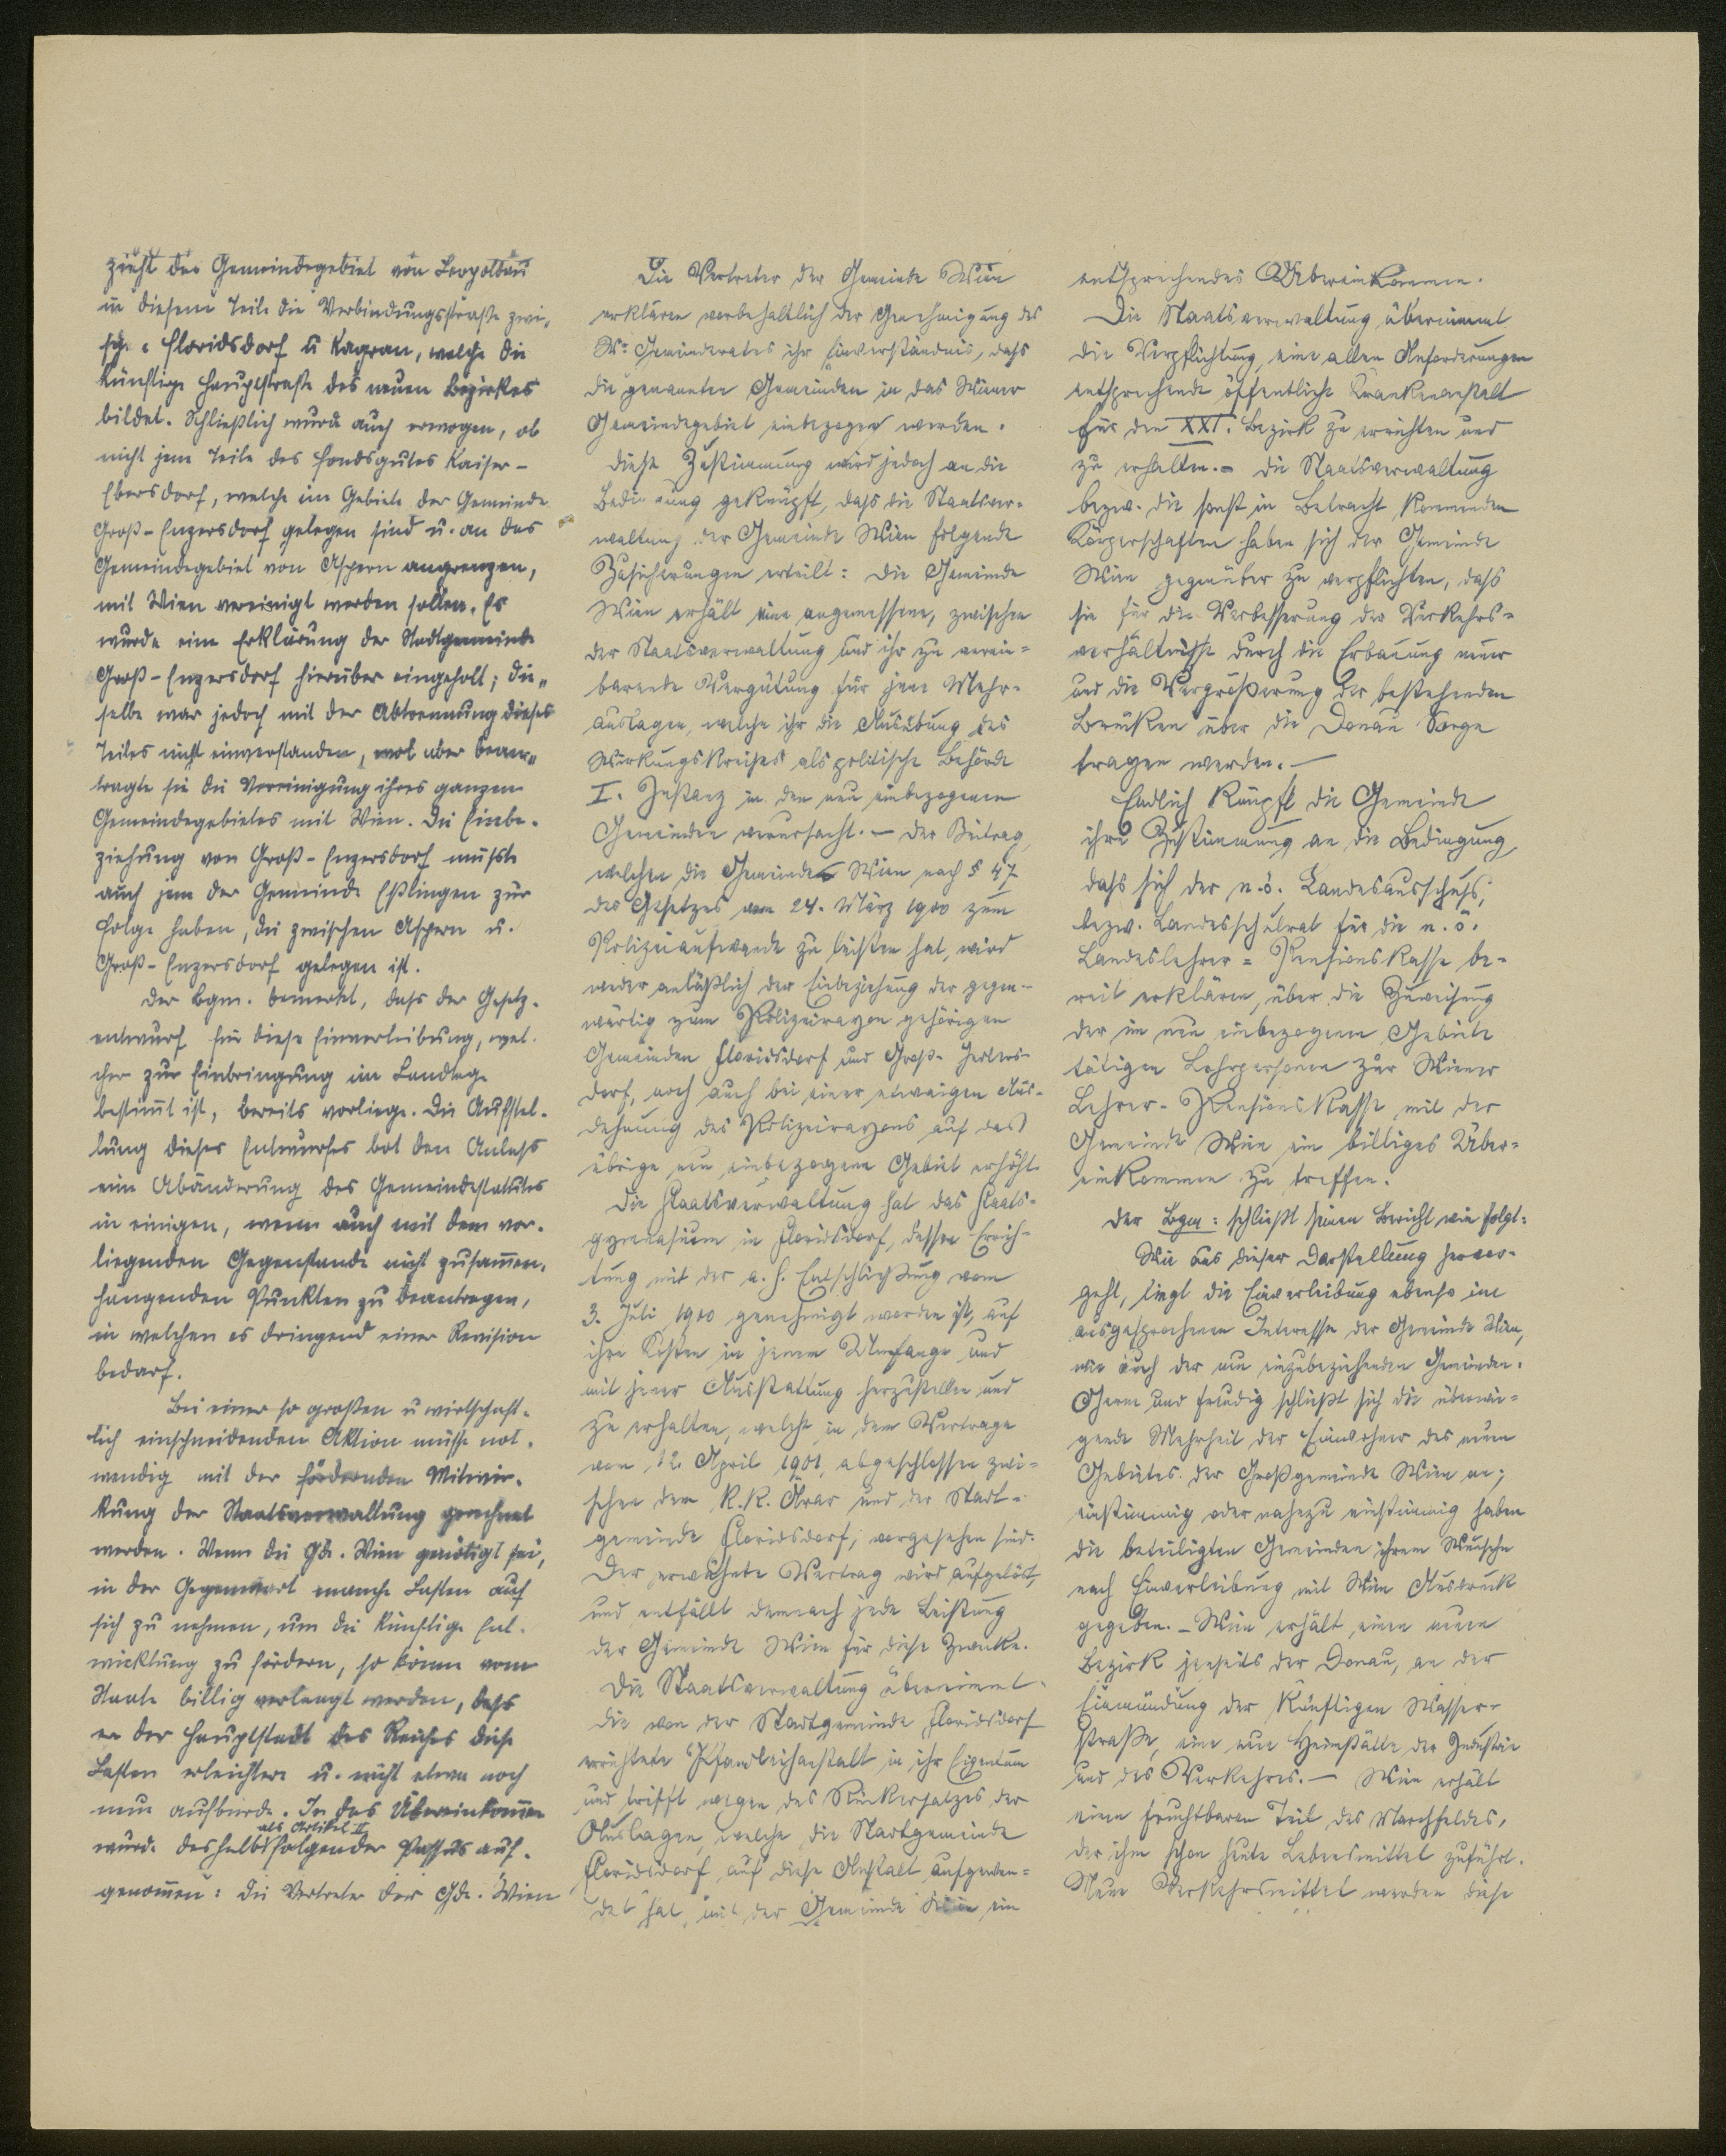 zieht das Gemeindegebiet von Leopoldau
in diesem Teile die Verbindungsstraße zwi„
sche Floridsdorf u Kagran, welche die
künftige Hauptstraße des neuen Bezirkes
bildet. Schließlich wurde auch erwogen, ob
nicht jene Teile des Fondsgutes Kaiser-
Ebersdorf, welche im Gebiete der Gemeinde
Groß-Enzersdorf gelegen sind u. an das
Gemeindegebiet von Aspern angrenzen,
mit Wien vereinigt werden sollen. Es
wurde eine Erklärung der Stadtgemeinde
Groß-Enzersdorf hierüber eingeholt; die„
selbe war jedoch mit der Abtrennung dieses
Teiles nicht einverstanden, wol aber bean„
tragte sie die Vereinigung ihres ganzen
Gemeindegebietes mit Wien. Die Einbe-
ziehung von Groß-Enzersdorf müsste
auch jene der Gemeinde Eßlingen zur
Folge haben, die zwischen Aspern u.
Groß-Enzersdorf gelegen ist.
Der Bgm. bemerkt, dass der Gesetz-
entwurf für diese Einverleibung, wel-
cher zur Einbringung im Landtage
bestimt ist, bereits vorliege. Die Aufstel-
lung dieses Entwurfes bot den Anlass
eine Abänderung des Gemeindestatutes
in einigen, wenn auch mit dem vor-
liegenden Gegenstande nicht zusamen-
hängenden Punkten zu beantragen,
in welchen es dringend einer Revision
bedarf.
Bei einer so großen u wirtschaft-
lich einschneidenden Aktion müsse not-
wendig mit der fördernden Mitwir-
kung der Staatsverwaltung gerechnet
werden. Wenn die Gde. Wien genötigt sei,
in der Gegenwart manche Lasten auf
sich zu nehmen, um die künftige Ent-
wicklung zu fördern, so könne vom
Staate billig verlangt werden, dass
er der Hauptstadt des Reiches diese
Lasten erleichtere u. nicht etwa noch
neue aufbürde. In das Übereinkomen
als Artikel II
wurde deshalb folgender Passus auf-
genomen: Die Vertreter der Gde. Wien
Die Vertreter der Gemeinde Wien
erklären vorbehaltlich der Genehmigung des
Wr. Gemeinderates ihr Einverständnis, dass
die genannten Gemeinden in das Wiener
Gemeindegebiet einbezogen werden.
Diese Zustimmung wird jedoch an die
Bedingung geknüpft, dass die Staatsver-
waltung der Gemeinde Wien folgende
Zusicherungen erteilt: Die Gemeinde
Wien erhält eine angemessene, zwischen
der Staatsverwaltung und ihr zu verein-
barende Vergütung für jene Mehr-
auslagen, welche ihr die Ausübung des
Wirkungskreises als politische Behörde
I. Instanz in den neu einbezogenen
Gemeinden verursacht. – Der Beitrag,
welchen die Gemeinde Wien nach § 47
des Gesetzes vom 24. März 1900 zum
Polizeiaufwande zu leisten hat, wird
weder anläßlich der Einbeziehung der gegen-
wärtig zum Polizeirayon gehörigen
Gemeinden Floridsdorf und Groß-Jedlers-
dorf, noch auch bei einer etwaigen Aus-
dehnung des Polizeirayons auf das
übrige neu einbezogene Gebiet erhöht.
Die Staatsverwaltung hat das Staats-
gymnasium in Floridsdorf, dessen Errich-
tung mit der a. h. Entschließung vom
3. Juli 1900 genehmigt worden ist, auf
ihre Kosten in jenem Umfange und
mit jener Ausstattung herzustellen und
zu erhalten, welche in dem Vertrage
vom 12. April 1901, abgeschlossen zwi-
schen dem k.k. Ärar und der Stadt-
gemeinde Floridsdorf, vorgesehen sind.
Der erwähnte Vertrag wird aufgelöst,
und entfällt demnach jede Leistung
der Gemeinde Wien für diese Zwecke.
Die Staatsverwaltung übernimmt
die von der Stadtgemeinde Floridsdorf
errichtete Pfandleihanstalt in ihr Eigentum
und trifft wegen des Rückersatzes der
Auslagen, welche die Stadtgemeinde
Floridsdorf auf diese Anstalt aufgewen-
det hat, mit der Gemeinde Wien ein
entsprechendes Uebereinkommen.
Die Staatsverwaltung übernimmt
die Verpflichtung, eine allen Anforderungen
entsprechende öffentliche Krankenanstalt
für den XXI. Bezirk zu errichten und
zu erhalten. – Die Staatsverwaltung
bezw. die sonst in Betracht kommenden
Körperschaften haben sich der Gemeinde
Wien gegenüber zu verpflichten, dass
sie für die Verbesserung der Verkehrs-
verhältnisse durch die Erbauung neuer
und die Vergrößerung der bestehenden
Brücken über die Donau Sorge
tragen werden. –
Endlich knüpft die Gemeinde
ihre Zustimmung an die Bedingung,
dass sich der n.ö. Landesausschuss,
bezw. Landesschulrat für die n.ö.
Landeslehrer-Pensionskasse be-
reit erklären, über die Zuweisung
der im neu einbezogenen Gebiete
tätigen Lehrpersonen zur Wiener
Lehrer-Pensionskasse mit der
Gemeinde Wien ein billiges Über-
einkommen zu treffen.
Der Bgm: schließt seinen Bericht wie folgt:
Wie aus dieser Darstellung hervor-
geht, liegt die Einverleibung ebenso im
ausgesprochenen Interesse der Gemeinde Wien,
wie auch der neu einzubeziehenden Gemeinden.
Gerne und freudig schließt sich die überwie-
gende Mehrheit der Einwohner des neuen
Gebietes der Großgemeinde Wien an;
einstimmig oder nahezu einstimmig haben
die beteiligten Gemeinden ihrem Wunsche
nach Einverleibung mit Wien Ausdruck
gegeben. – Wien erhält einen neuen
Bezirk jenseits der Donau, an der
Einmündung der künftigen Wasser-
straße, eine neue Heimstätte der Industrie
und des Verkehres. – Wien erhält
einen fruchtbaren Teil des Marchfeldes,
der ihm schon heute Lebensmittel zuführt.
Neue Verkehrsmittel werden diese